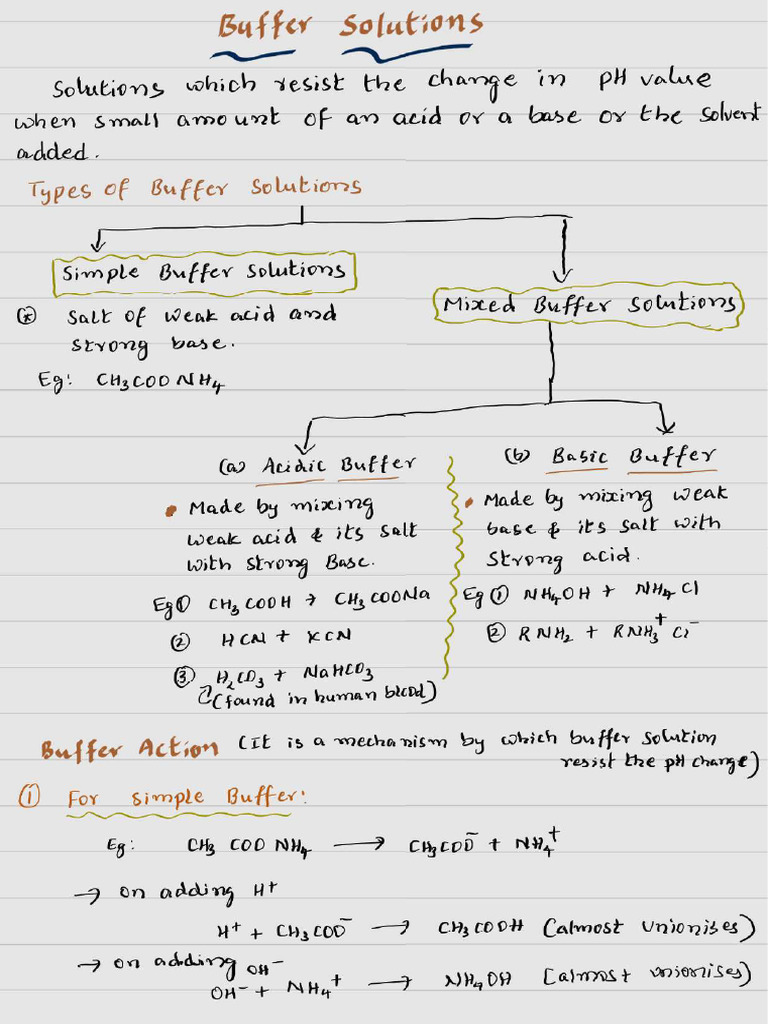 Buffer Solutions
Solutions which resist the change in pH value
when small amount of an acid or a base or the solvent
added.
Types of Buffer Solutions
Simple Buffer Solutions
* Salt of weak acid and
strong base.
Eg: CH₃COONH₄
Mixed Buffer Solutions
(a) Acidic Buffer
• Made by mixing
weak acid & its Salt
with strong Base.
Eg ① CH₃COOH + CH₃COONa
② HCN + KCN
③ H₂CO₃ + NaHCO₃
(found in human blood)
(b) Basic Buffer
• Made by mixing weak
base & its salt with
strong acid.
Eg ① NH₄OH + NH₄Cl
② RNH₂ + RNH₃⁺ Cl⁻
Buffer Action (It is a mechanism by which buffer solution
resist the pH change)
① For simple Buffer:
Eg: CH₃COONH₄ → CH₃COO⁻ + NH₄⁺
→ on adding H⁺
H⁺ + CH₃COO⁻ → CH₃COOH (almost unionises)
→ on adding OH⁻
OH⁻ + NH₄⁺ → NH₄OH (almost unionises)